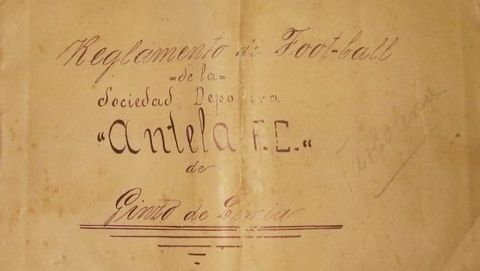 Reglamento de Foot-ball
=de la=
Sociedad Deportiva
"Antela F.C."
de
Ginzo de Limia